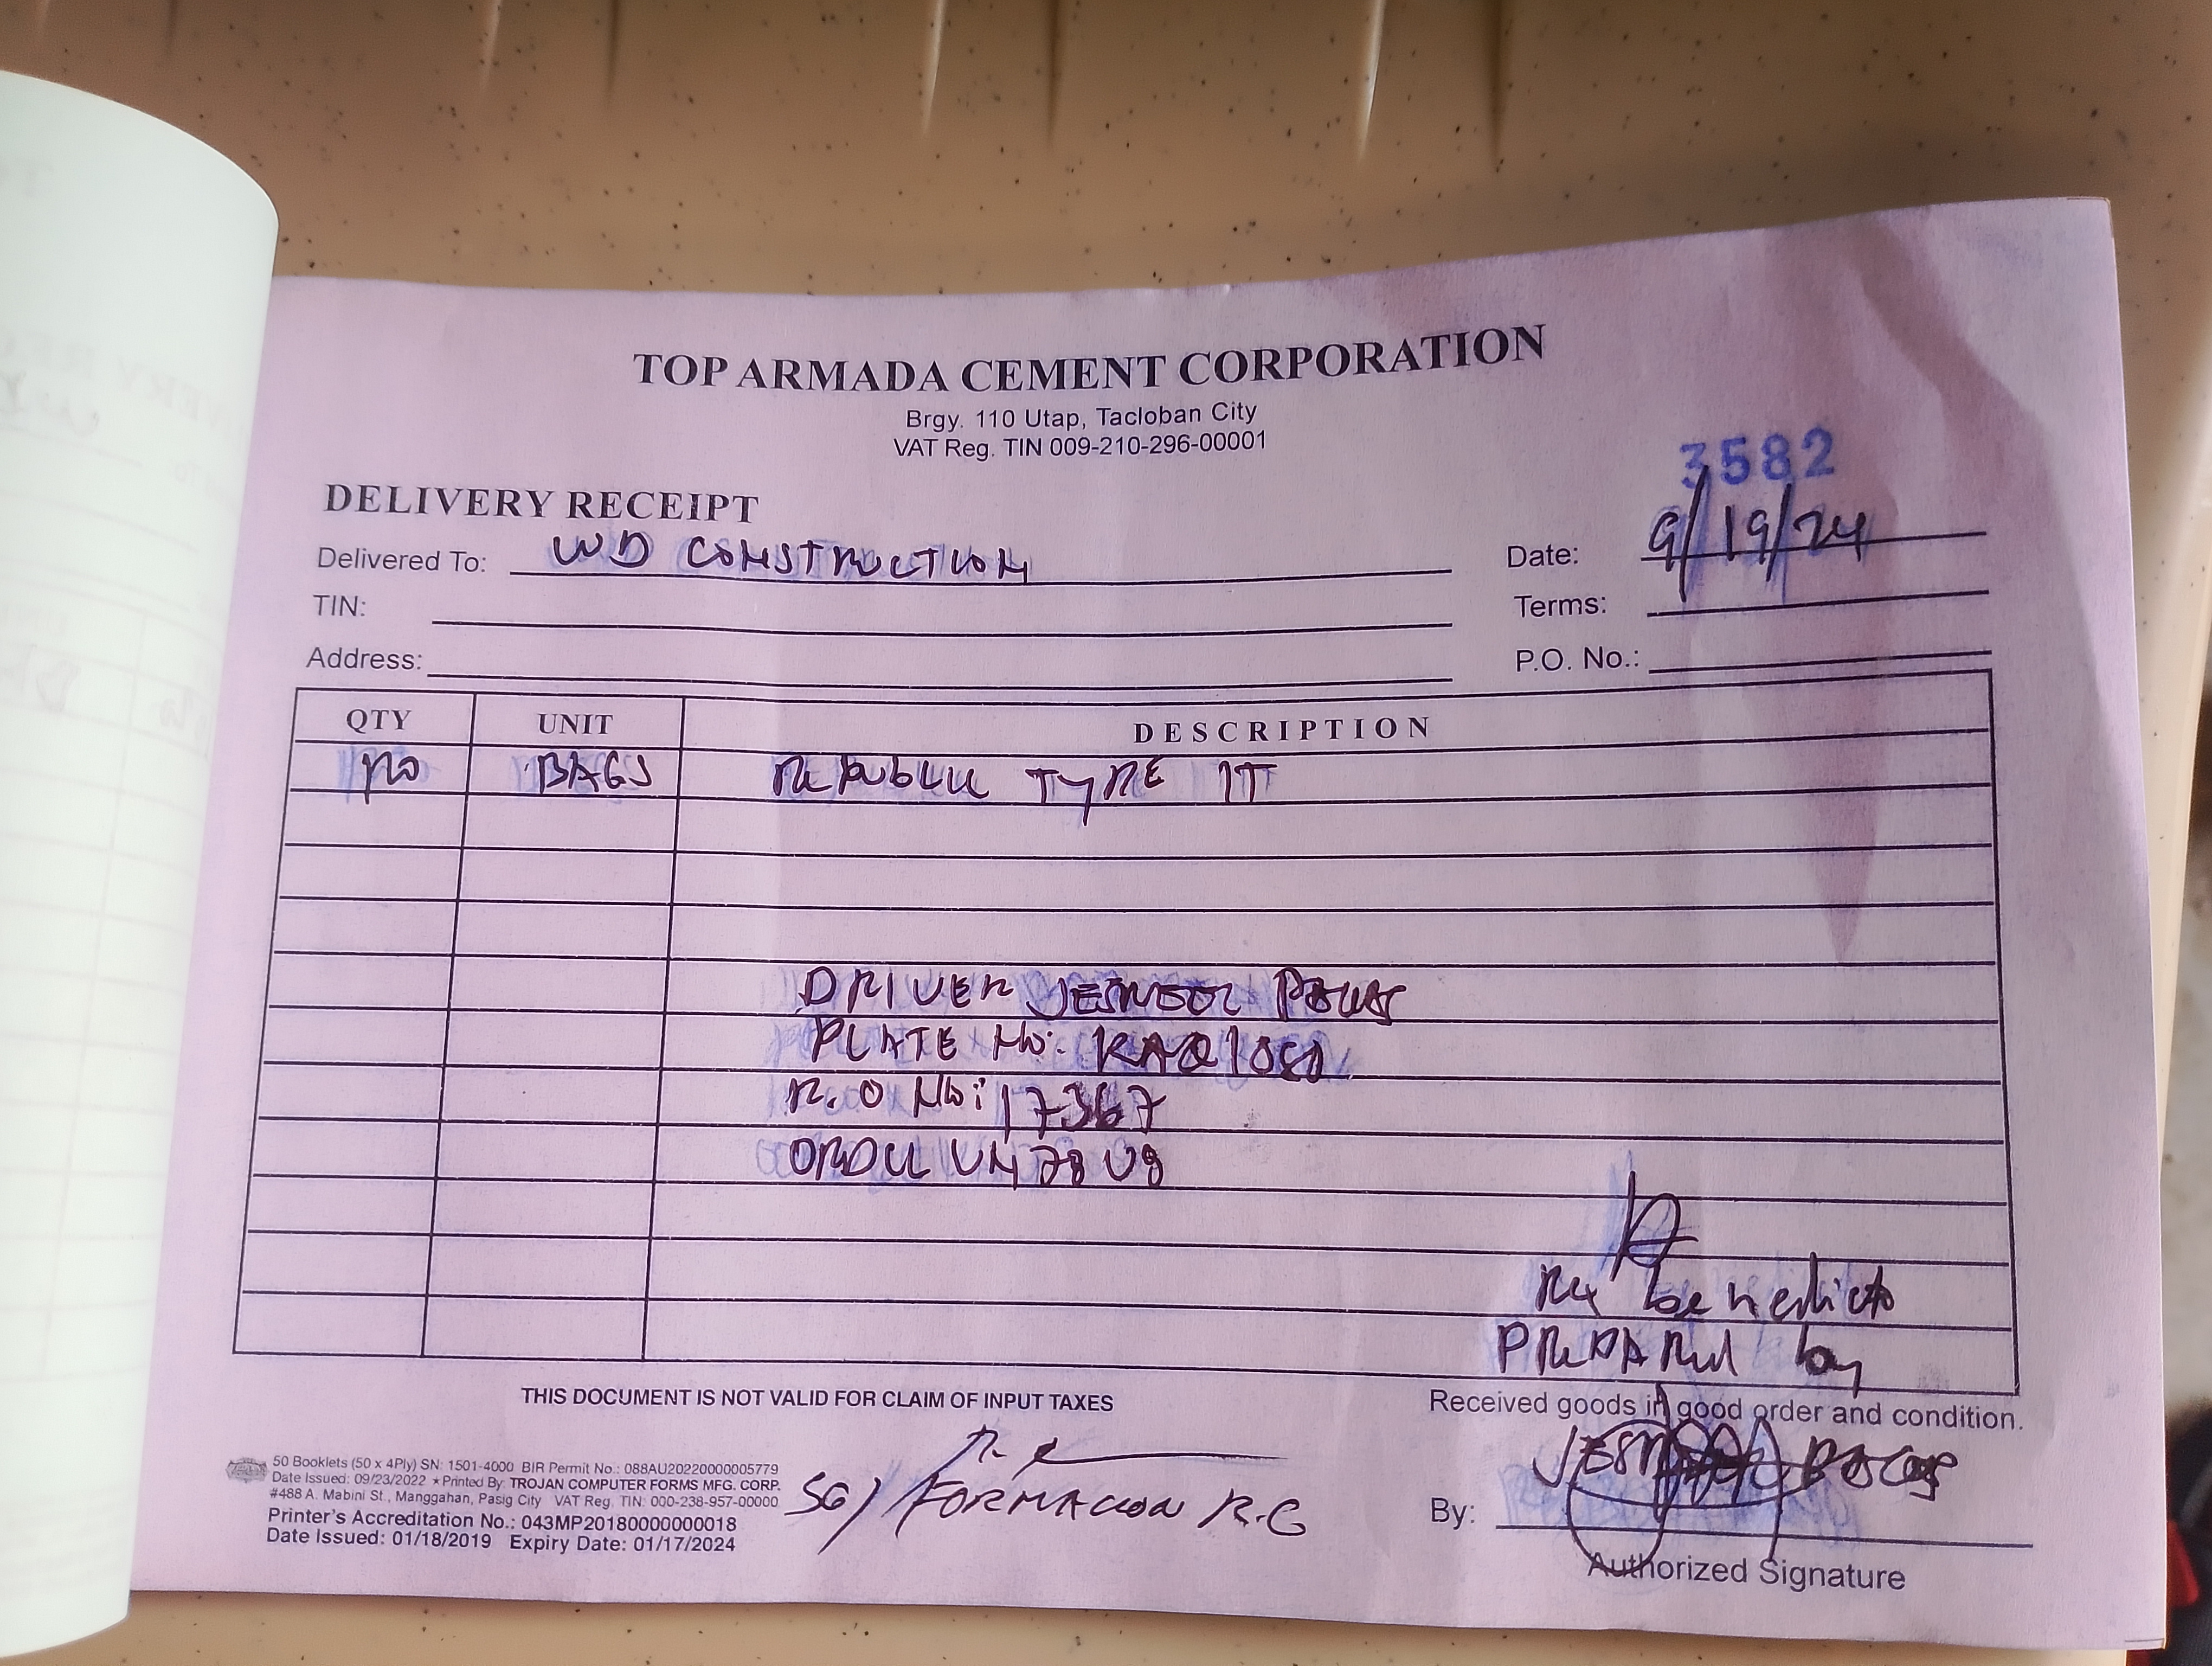 TOP ARMADA CEMENT CORPORATION
Brgy. 110 Utap, Tacloban City
VAT Reg. TIN 009-210-296-00001
3582
DELIVERY RECEIPT
Delivered To: WD CONSTRUCTION
Date: 9/19/24
TIN:
Terms:
Address:
P.O. No.:
QTY UNIT DESCRIPTION
BAGS TYPE
DRIVER
PLATE No:
R.O No: 17367
benedicto
by
THIS DOCUMENT IS NOT VALID FOR CLAIM OF INPUT TAXES
Received goods in good order and condition.
50 Booklets (50 x 4Ply) SN: 1501-4000 BIR Permit No.: 088AU20220000005779
Date Issued: 09/23/2022 ★ Printed By: TROJAN COMPUTER FORMS MFG. CORP.
#488 A. Mabini St., Manggahan, Pasig City VAT Reg. TIN: 000-238-957-00000
Printer's Accreditation No.: 043MP20180000000018
Date Issued: 01/18/2019 Expiry Date: 01/17/2024
SG/ FORMACION R.G
By:
Authorized Signature